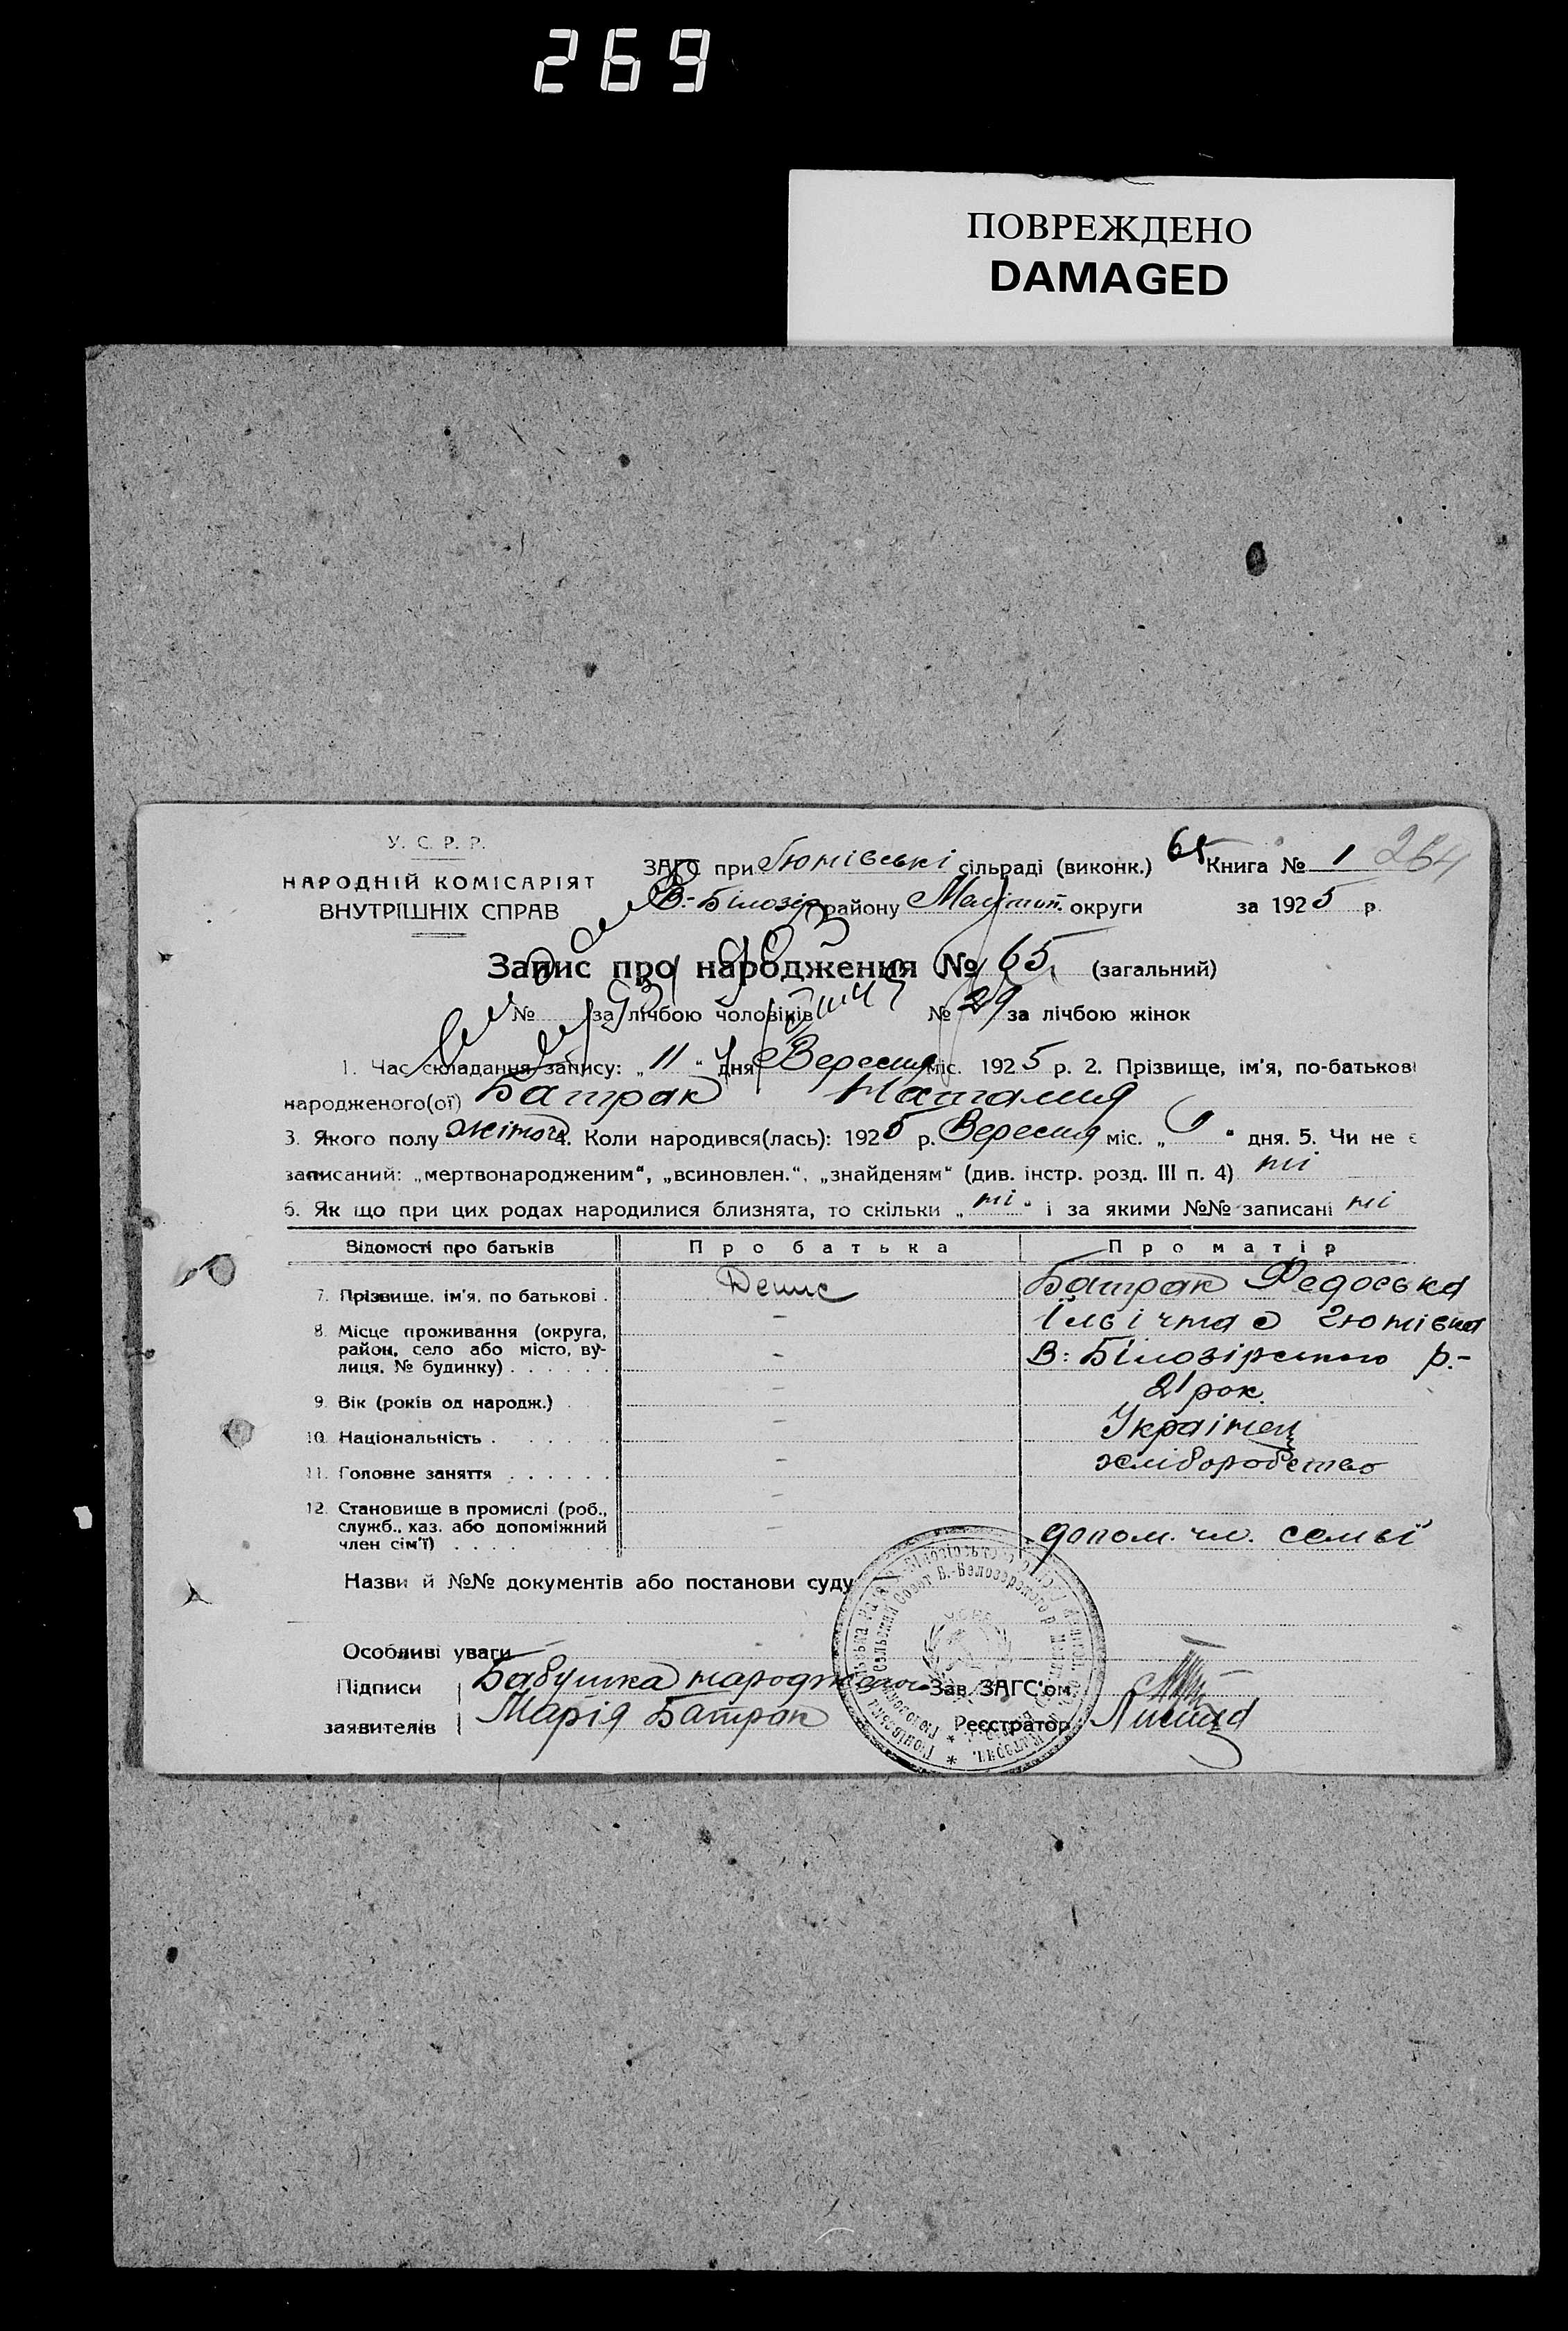 269
ПОВРЕЖДЕНО
DAMAGED
У. С. Р. Р.
НАРОДНІЙ КОМІСАРІЯТ
ВНУТРІШНІХ СПРАВ
ЗАГС при Гюнівські сільраді (виконк.) 65 Книга № 1 264
В.-Білозір району Мелітоп. округи за 1925 р.
Запис про народження № 65 (загальний)
№ за лічбою чоловіків № 29 за лічбою жінок
1. Час складання запису: „11" дня Вересня міс. 1925 р. 2. Прізвище, ім'я, по-батькові
народженого(ої) Батрак Наталия
3. Якого полу жіноч 4. Коли народився(лась): 1925 р. Вересня міс. „ " дня. 5. Чи не є
записаний: „мертвонародженим", „всиновлен.", „знайденям" (див. інстр. розд. III п. 4) ні
6. Як що при цих родах народилися близнята, то скільки „ні" і за якими №№ записані ні
Відомості про батьків Про батька Про матір
7. Прізвище, ім'я, по батькові . Денис Батрак Федоська
8. Місце проживання (округа, – Ілвічна с Гюнівка
район, село або місто, ву- – В: Білозірського р.-
лиця, № будинку) . . . . . .
9. Вік (років од народж.) . – 21 рок.
10. Національність . . . . . . – Українец
11. Головне заняття . . . . . . – хліборобство
12. Становище в промислі (роб., –
служб., хаз. або допоміжний – допом. чл. семьї
член сім'ї) . . . .
Назви й №№ документів або постанови суду
Особливі уваги
Підписи Бабушка народженого Зав. ЗАГС'ом
заявителів Марія Батрак Реєстратор